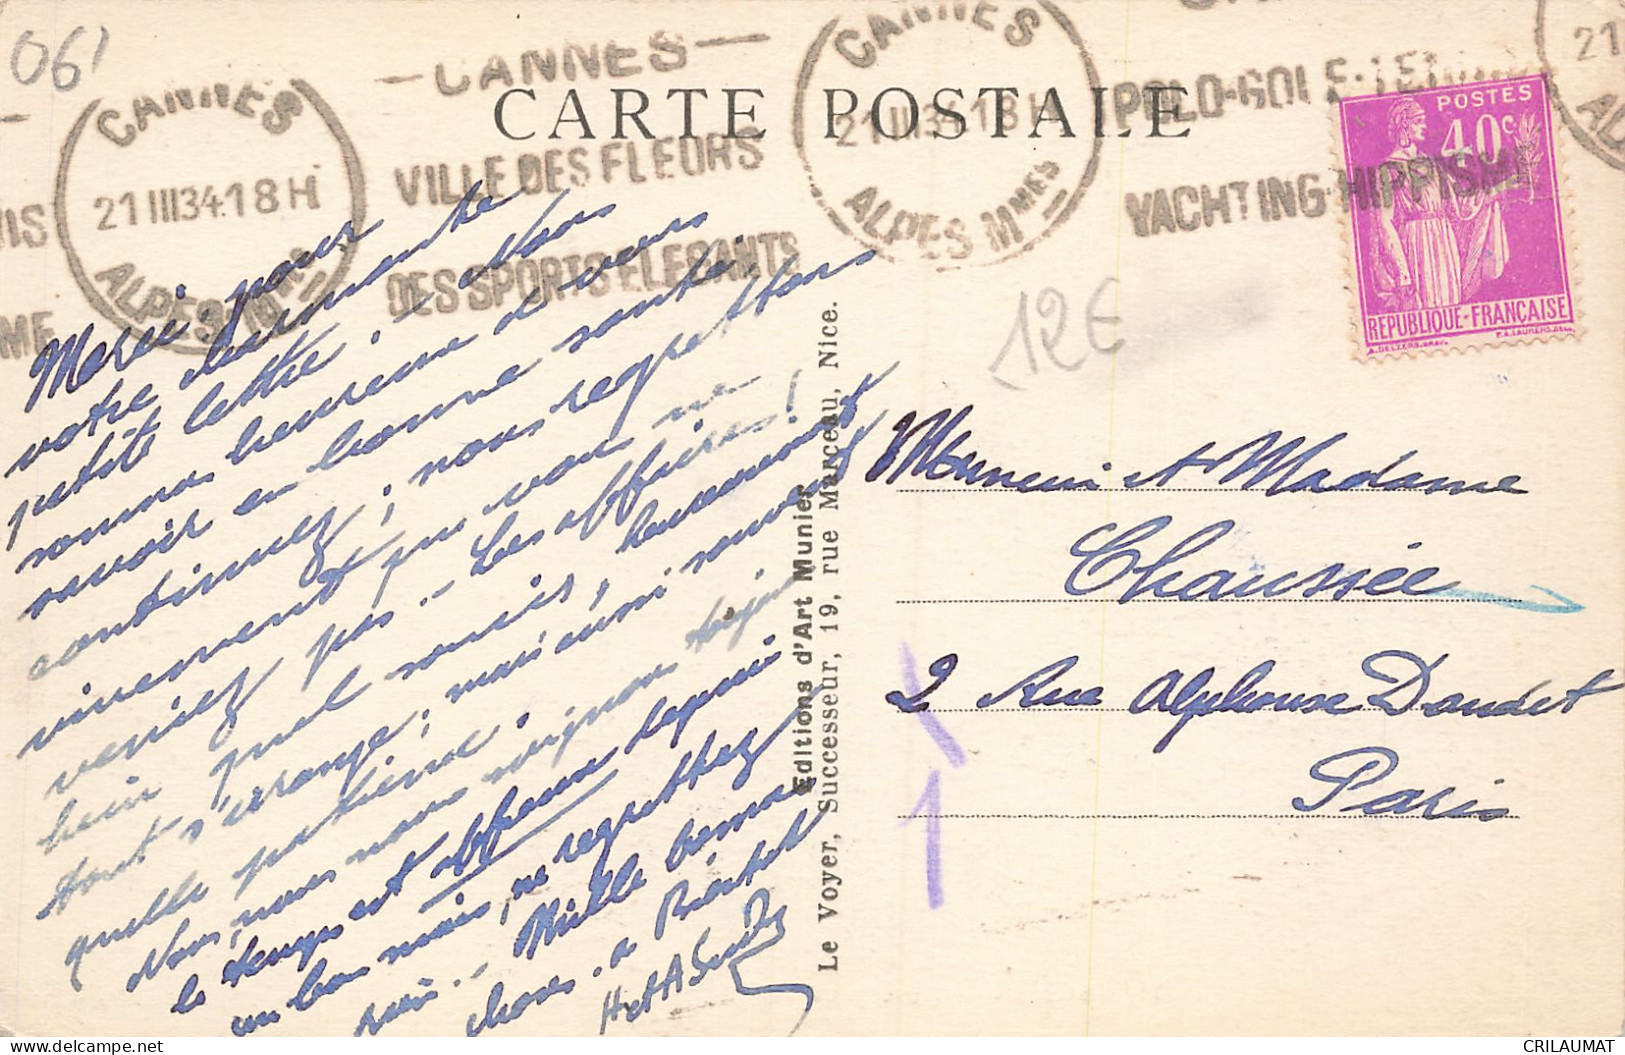 061
CANNES
21 III 34 18 H
ALPES Mmes
— CANNES —
VILLE DES FLEURS
DES SPORTS ELEGANTS
CANNES
21 III 34 18 H
ALPES MMES
POLO-GOLF-TEN
YACHTING-HIPPISM
21
CARTE POSTALE
POSTES
40c
REPUBLIQUE-FRANÇAISE
12€
Merci pour
votre charmante
petite lettre. – Nous
sommes heureux de vous
savoir en bonne santé,
continuez; nous regrettons
vivement que vous ne
veniez pas – Les affaires!
bien quel soucis, heureusement
tout s'arrange; mais aussi souvent
quelle patience!
Nous, nous nous soignons toujours
le temps est affreux depuis
un bon mois, ne regrettez
rien. – Mille bonnes
choses. à Bientôt
Editions d'Art Munier
Le Voyer, Successeur, 19, rue Marceau, Nice.
Monsieur et Madame
Chaussée
2 Rue Alphonse Daudet
Paris
1
delcampe.net
CRILAUMAT